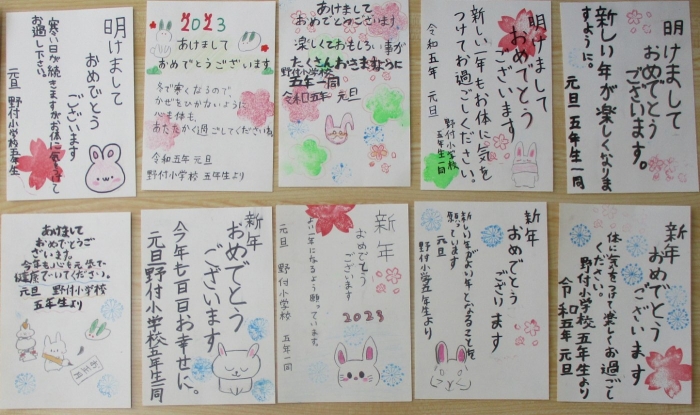 明けまして
おめでとう
ございます
寒い日が続きますがお体に気をつけて
お過し下さい。
元旦 野付小学校五年生
2023
あけまして
おめでとうございます
冬で寒くなるので、
かぜをひかないように
心も体も、
あたたかく過ごしてくださいね。
令和五年 元旦
野付小学校 五年生より
あけまして
おめでとうございます
楽しくておもしろい事が
たくさんおきますように
野付小学校
五年一同
令和五年 元旦
明けまして
おめでとう
ございます
新しい一年もお体に気を
つけてお過ごしください。
令和五年 元旦
野付小学校
五年生一同
明けまして
おめでとう
ございます。
新しい年が楽しくなりま
すように。
元旦 五年生一同
あけまして
おめでとうご
ざいます。
今年も心も元気で
健康でいてください。
元旦 野付小学校
五年生より
お正月
新年
おめでとう
ございます
今年も一日一日お幸せに。
元旦 野付小学校五年生一同
新年
おめでとう
ございます
2023
よい一年になるよう願っています。
元旦 野付小学校 五年一同
新年
おめでとう
ございます
新しい年がよい年となることを
願っています
元旦
野付小学校五年生より
新年
おめでとう
ございます
体に気をつけて楽しくお過ごし
ください。
野付小学校五年生より
令和五年 元旦